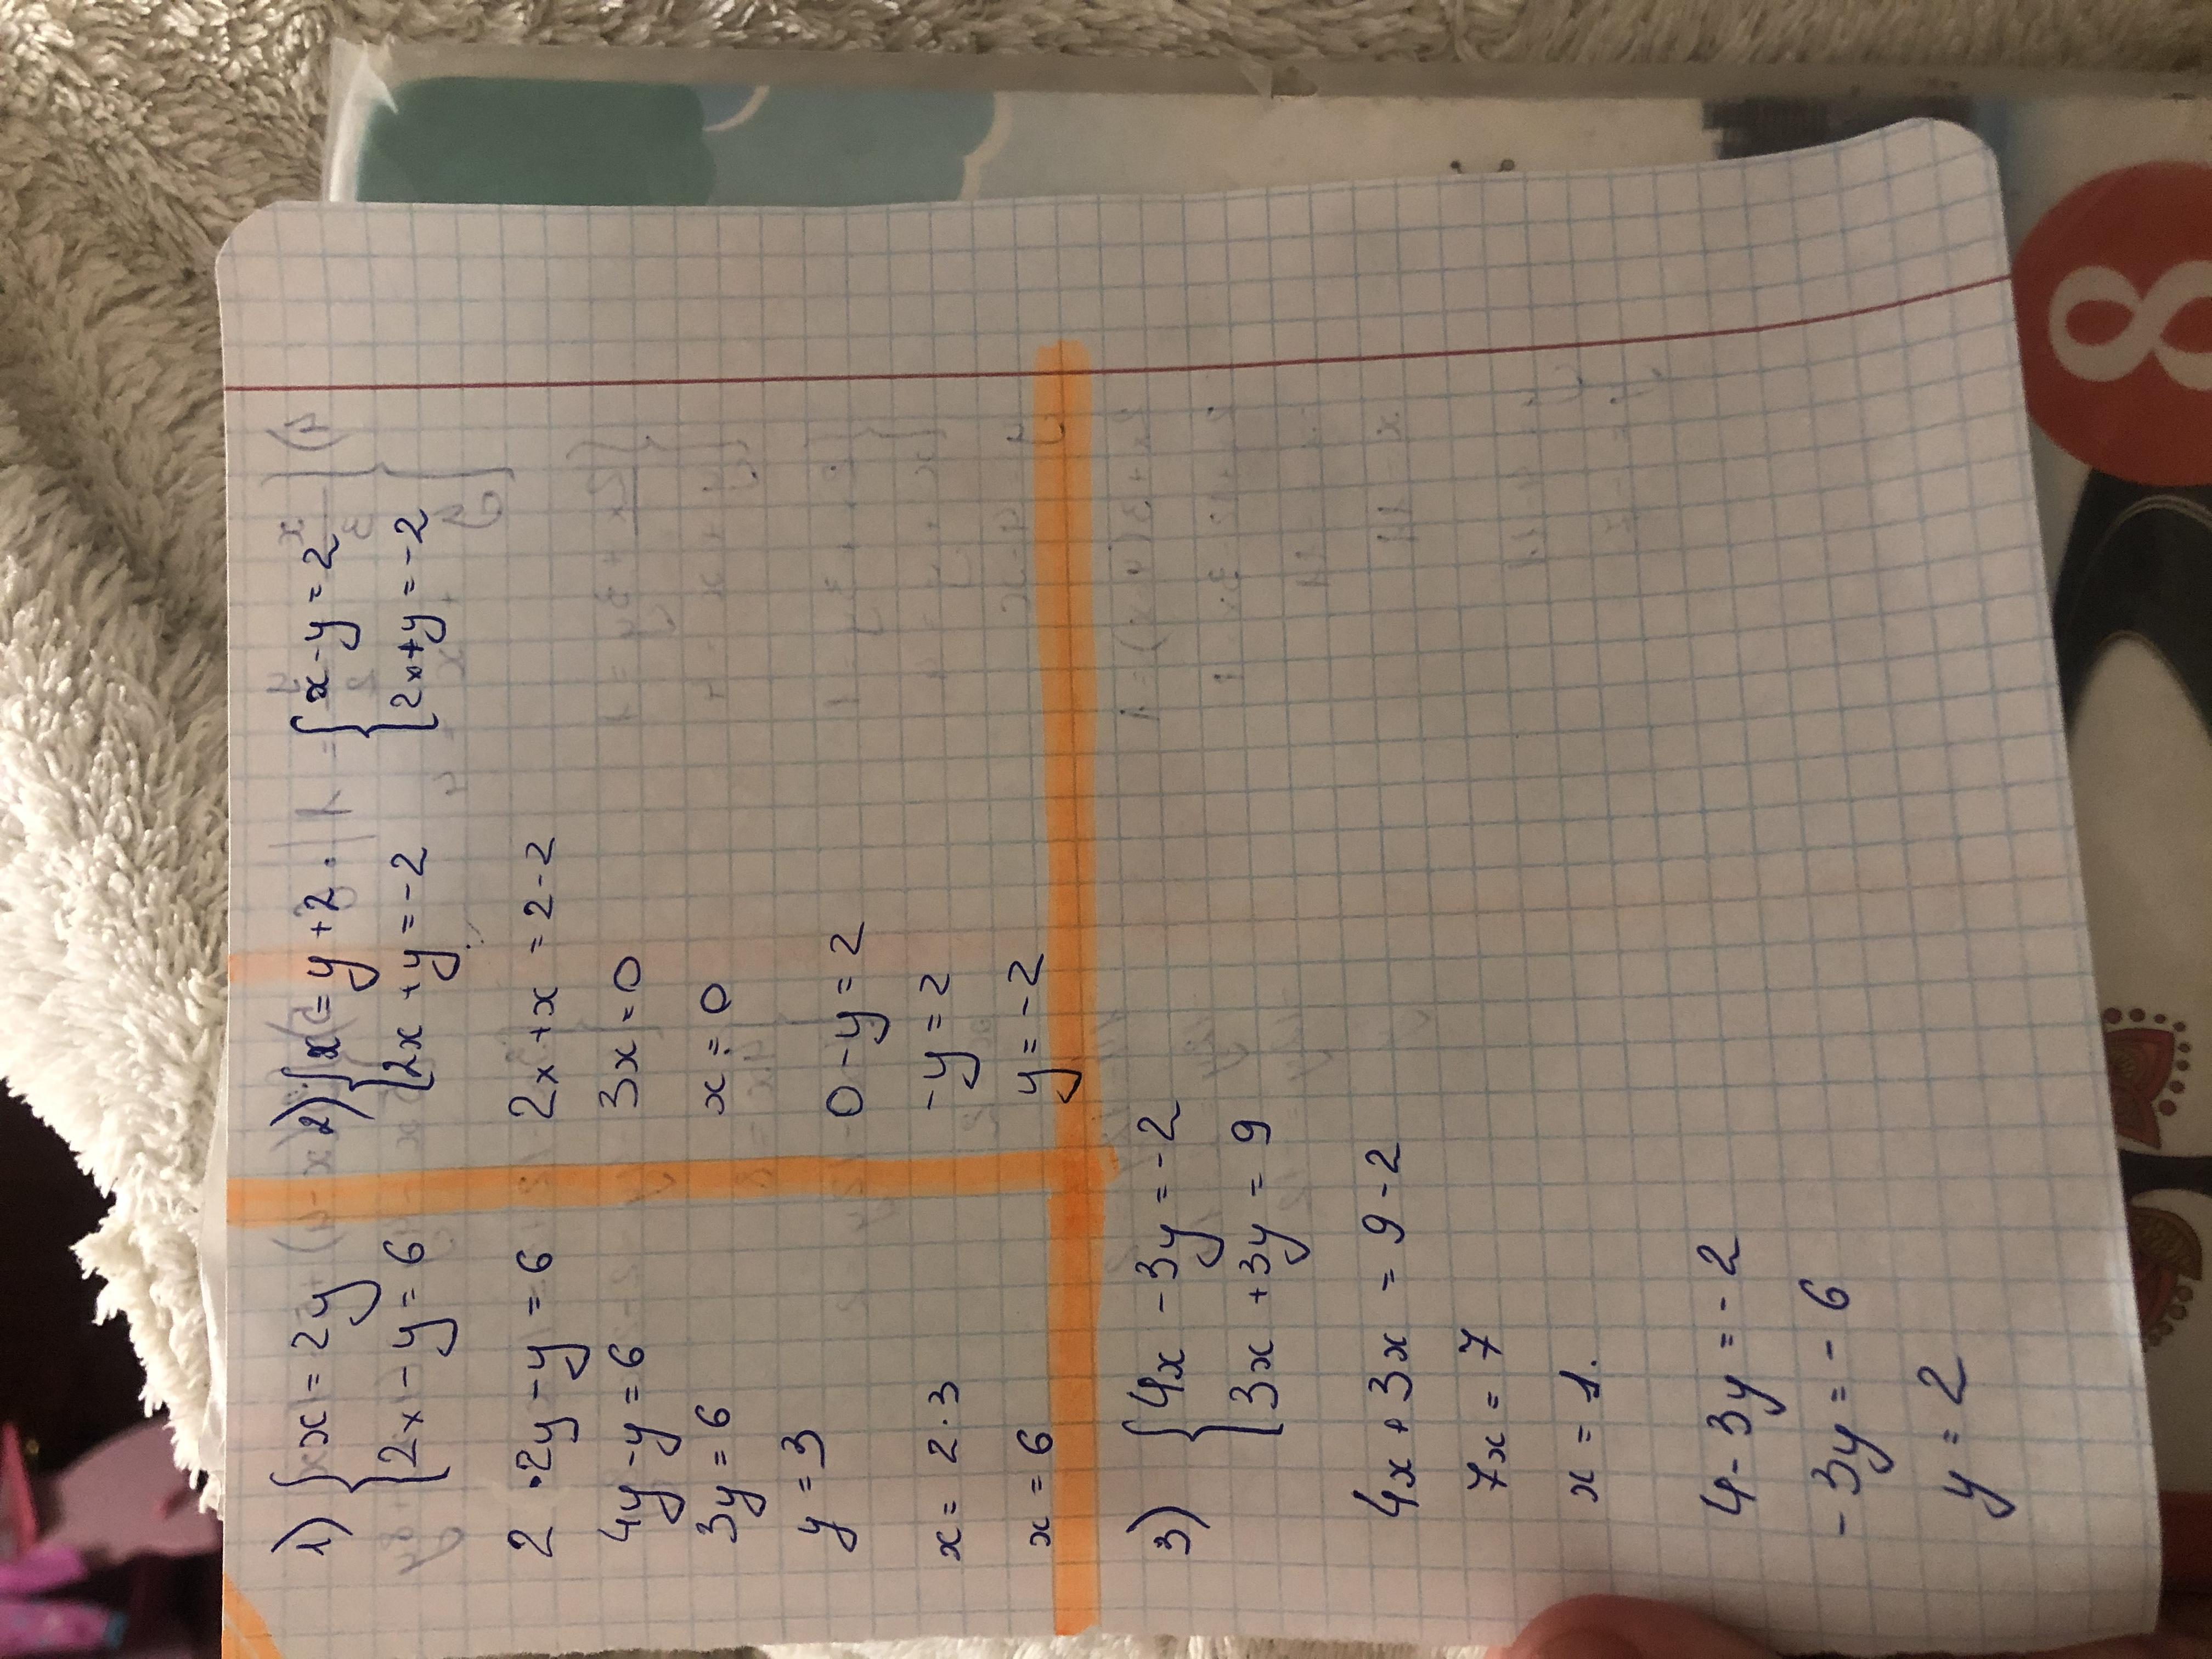 1) { x = 2y
{ 2x - y = 6
2 · 2y - y = 6
4y - y = 6
3y = 6
y = 3
x = 2 · 3
x = 6
2) { x = y + 2. { x - y = 2
{ 2x + y = -2 { 2x + y = -2
2x + x = 2 - 2
3x = 0
x = 0
0 - y = 2
- y = 2
y = -2
3) { 4x - 3y = -2
{ 3x + 3y = 9
4x + 3x = 9 - 2
7x = 7
x = 1.
4 - 3y = -2
- 3y = - 6
y = 2
8